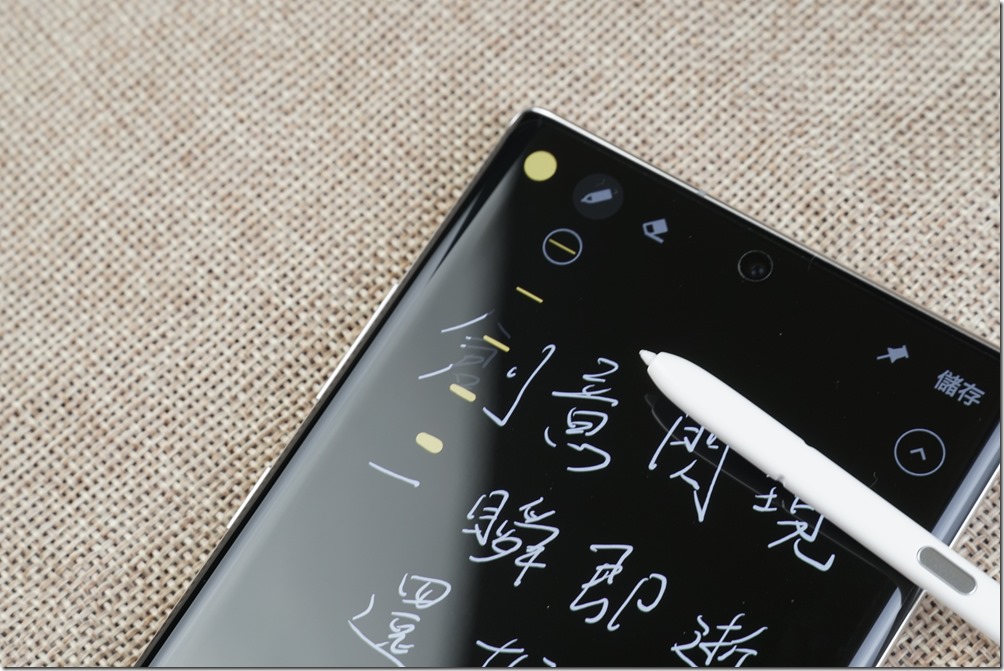 儲存
創意閃現
一瞬即逝
還好